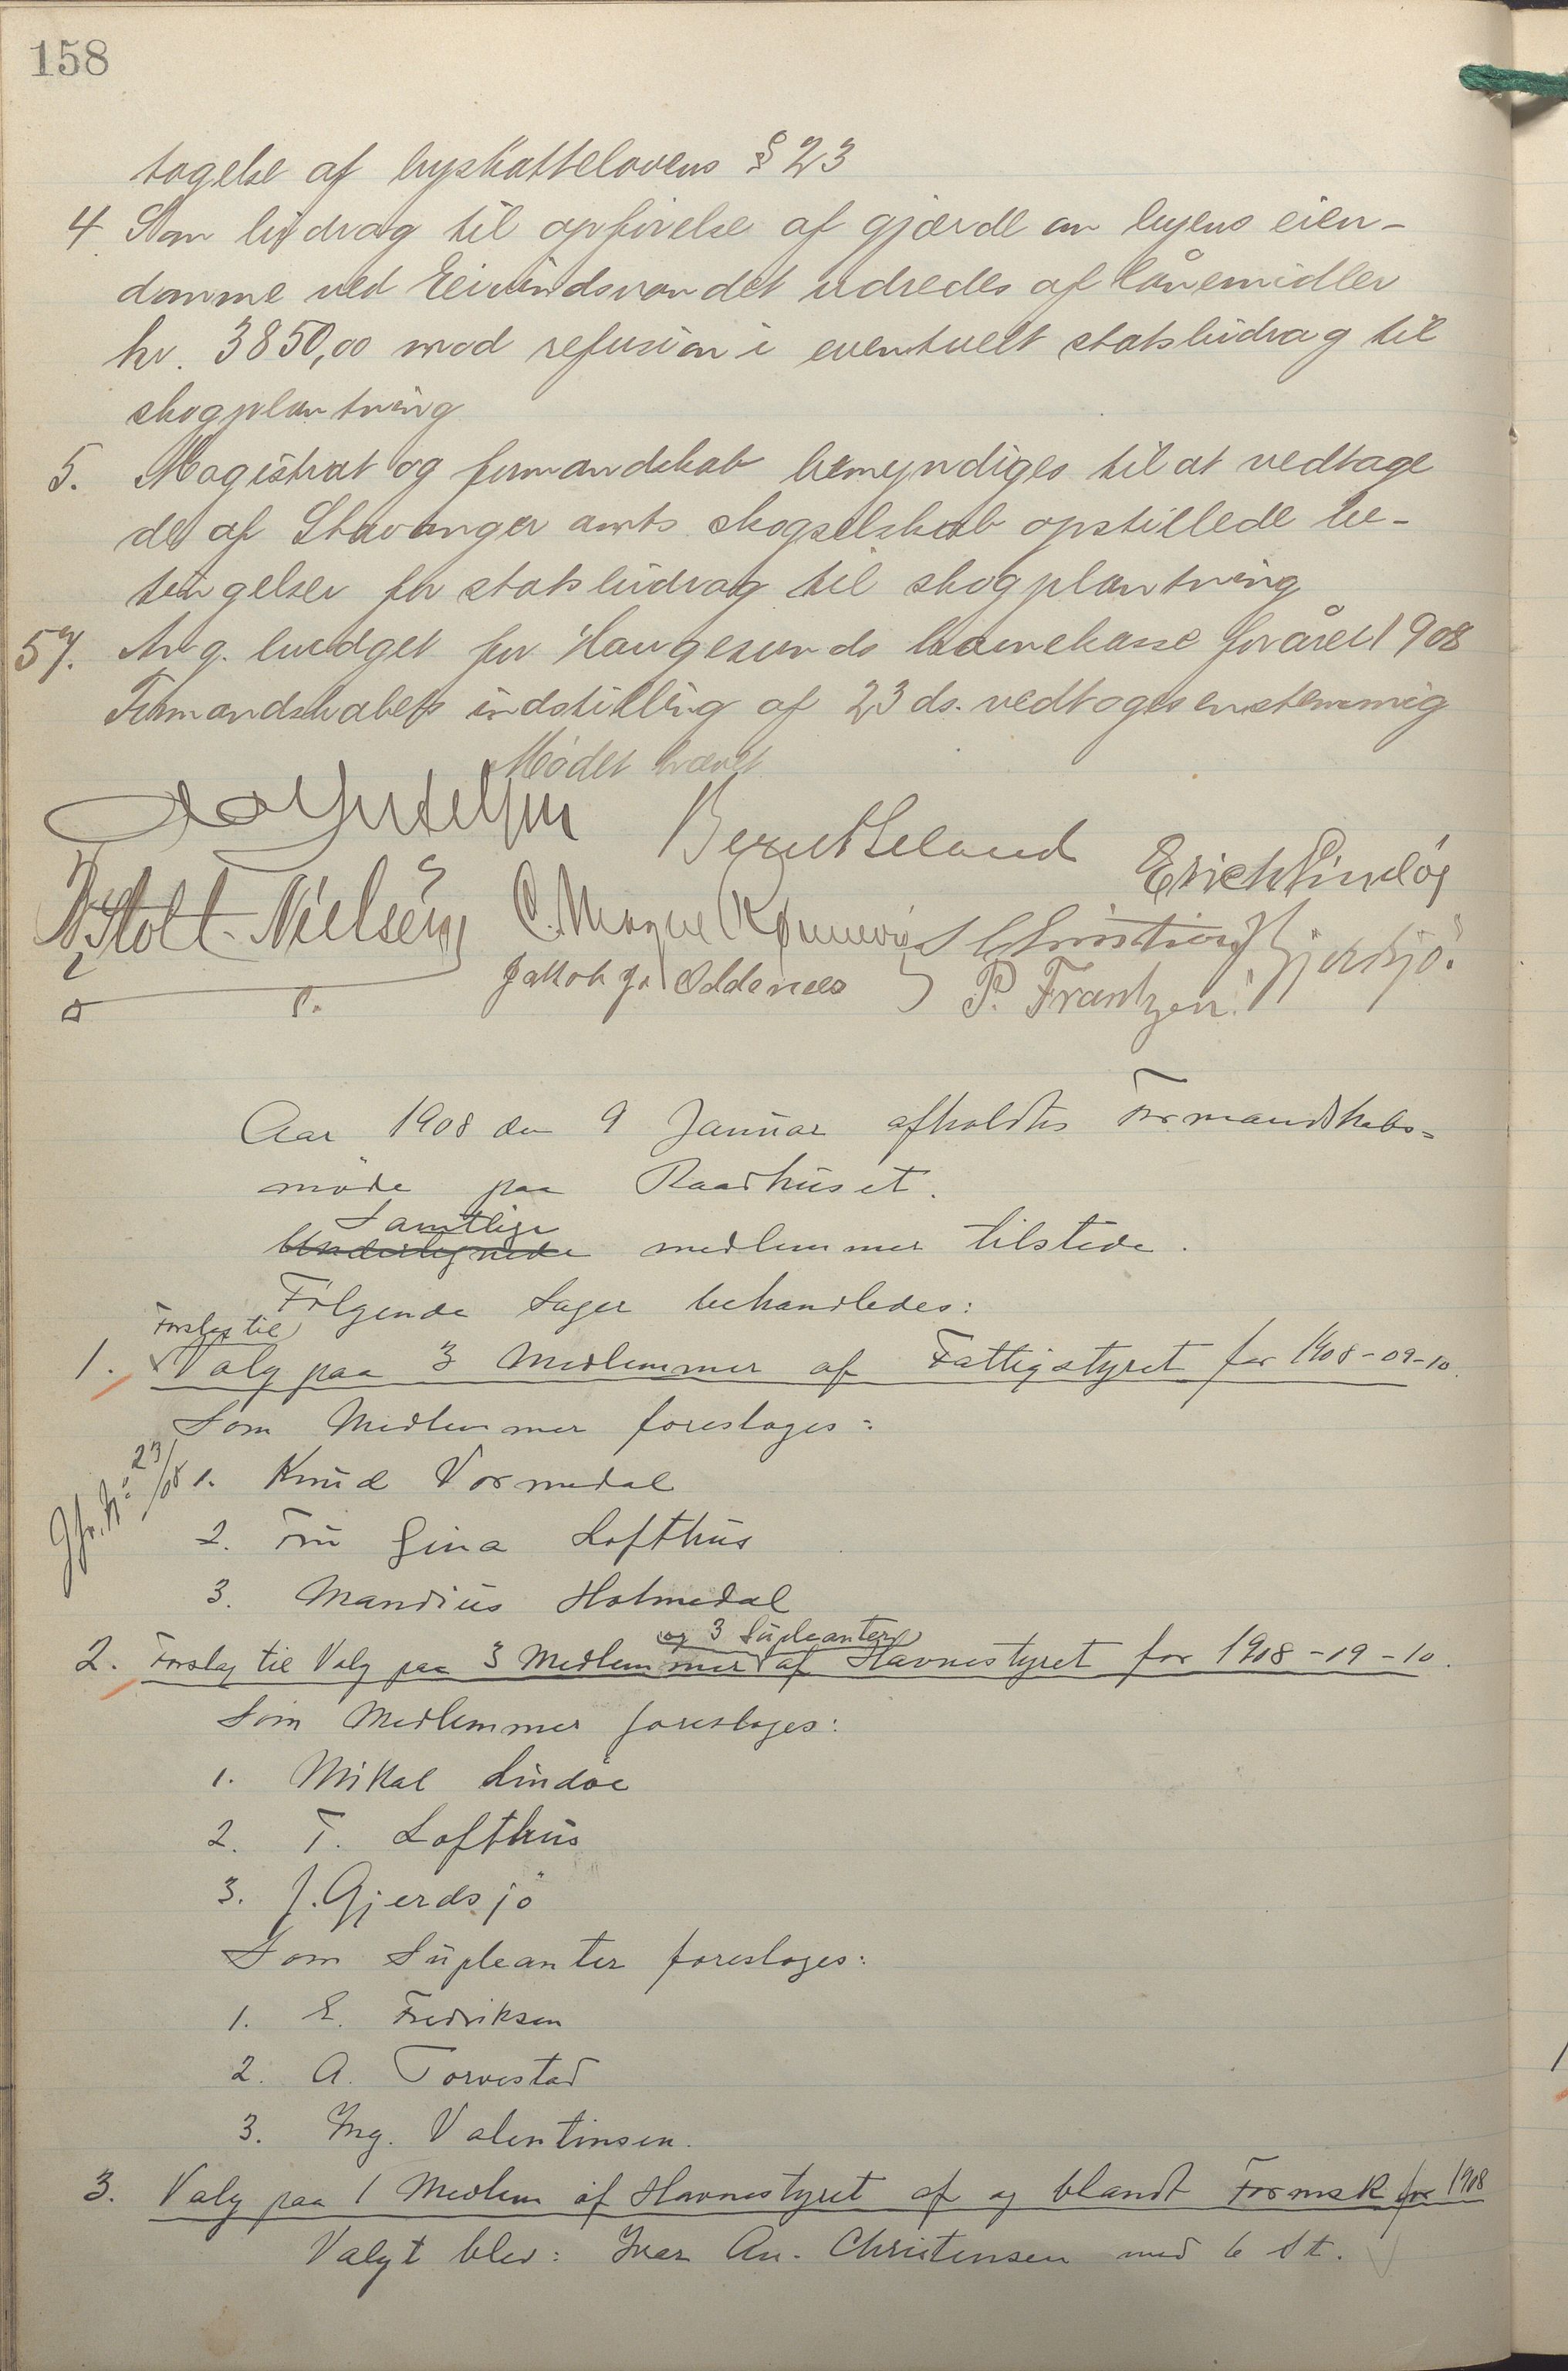 158
tagelse af byskattelovens § 23
4 Som bidrag til opførelse af gjærde om byens eien-
domme ved Eivindsvandet udredes af lånemidler
kr. 3850,00 mod refusion i eventuelt statsbidrag til
skogplantning
5. Magistrat og formandskab bemyndiges til at vedtage
de af Stavanger amts skogselskab opstillede be-
tingelser for statsbidrag til skogplantning
57. Ang. budget for Haugesunds havnekasse for året 1908
Formandskabets indstilling af 23 ds. vedtoges enstemmig
Mødet hævet
Bernt Eeland Erich Lindøy
Stolt-Nielsen C. Magne Rønnevig Christian Gjerdsjö.
Jakob J. Oddenes P. Frantzen.
Aar 1908 den 9 Januar afholdtes Formandskabs=
möde paa Raadhuset.
Samtlige
Undertegnede medlemmer tilstede.
Følgende Sager behandledes:
Forslag til
1. Valg paa 3 Medlemmer af Fattigstyret for 1908-09-10.
Som Medlemmer foreslages:
Jfr. No 23/08
1. Knud Vormedal
2. Fru Gina Lofthus
3. Mandius Holmedal
og 3 Supleanter
2. Forslag til Valg paa 3 Medlemmer af Havnestyret for 1908-19-10.
Som Medlemmer foreslages:
1. Mikal Lindöe
2. T. Lofthus
3. J. Gjerdsjö
Som Supleanter foreslages:
1. E. Fredriksen
2. A. Torvestad
3. Ing. Valentinsen.
3. Valg paa 1 Medlem af Havnestyret af og blandt Formsk for 1908
Valgt blev: Ivar An. Christensen med 6 St.